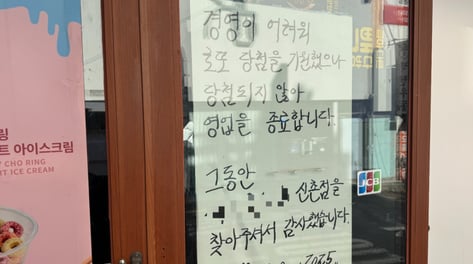 경영이 어려워
로또 당첨을 기원했으나
당첨되지 않아
영업을 종료합니다.
그동안
신촌점을
찾아주셔서 감사했습니다.
JCB
링
트 아이스크림
Y CHO RING
RT ICE CREAM